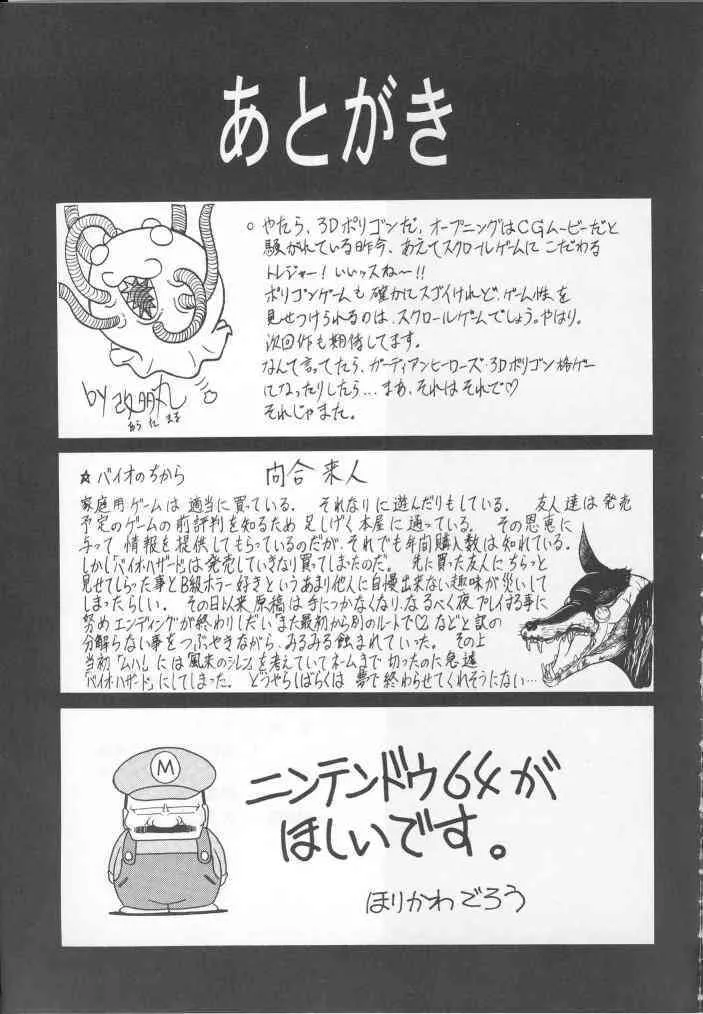 あとがき
○ やたら、3Dポリゴンだ、オープニングはCGムービーだと
騒がれている昨今、あえてスクロールゲームにこだわる
トレジャー！いいッスね〜!!
ポリゴンゲームも確かにスゴイけれど、ゲーム性を
見せつけられるのは、スクロールゲームでしょう。やはり。
次回作も期待してます。
なんて言ってたら、ガーディアンヒーローズ・3Dポリゴン格ゲー
になったりしたら...まあ、それはそれで♡
それじゃまた。
by
☆バイオのちから 向合来人
家庭用ゲームは適当に買っている。それなりに遊んだりもしている。友人達は発売
予定のゲームの前評判を知るため足しげく本屋に通っている。その恩恵に
与って情報を提供してもらっているのだが、それでも年間購入数は知れている。
しかし「バイオハザード」は発売していきなり買ってしまったのだ。先に買った友人にちらっと
見せてもらった事とB級ホラー好きというあまり他人に自慢出来ない趣味が災いして
しまったらしい。その日以来原稿は手につかなくなり、なるべく夜プレイする事に
努めエンディングが終わりしだい「また最初から別のルートで♡」などと訳の
分解らない事をつぶやきながら、みるみる蝕まれていった。その上
当初「ムハム」には「風来のシレン」を考えていてネームまで切ったのに急遽
「バイオハザード」にしてしまった。どうやらしばらくは夢で終わらせてくれそうにない…
M
ニンテンドウ64が
ほしいです。
ほりかわごろう